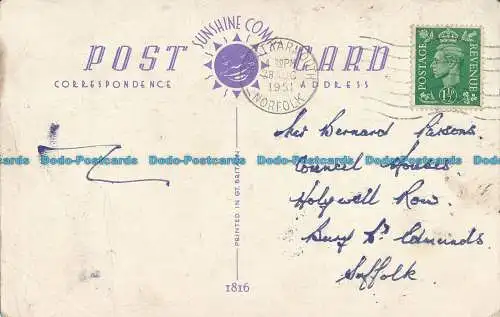 SUNSHINE COM
POST CARD
CORRESPONDENCE ADDRESS
YARMOUTH
PM
1951
NORFOLK
POSTAGE REVENUE
1½D
Bernard Parsons.
Council Houses
Holywell Row.
Bury St Edmunds
Suffolk.
Dodo-Postcards Dodo-Postcards Dodo-Postcards Dodo-Postcards Dodo-Postcards
PRINTED IN GT. BRITAIN
1816